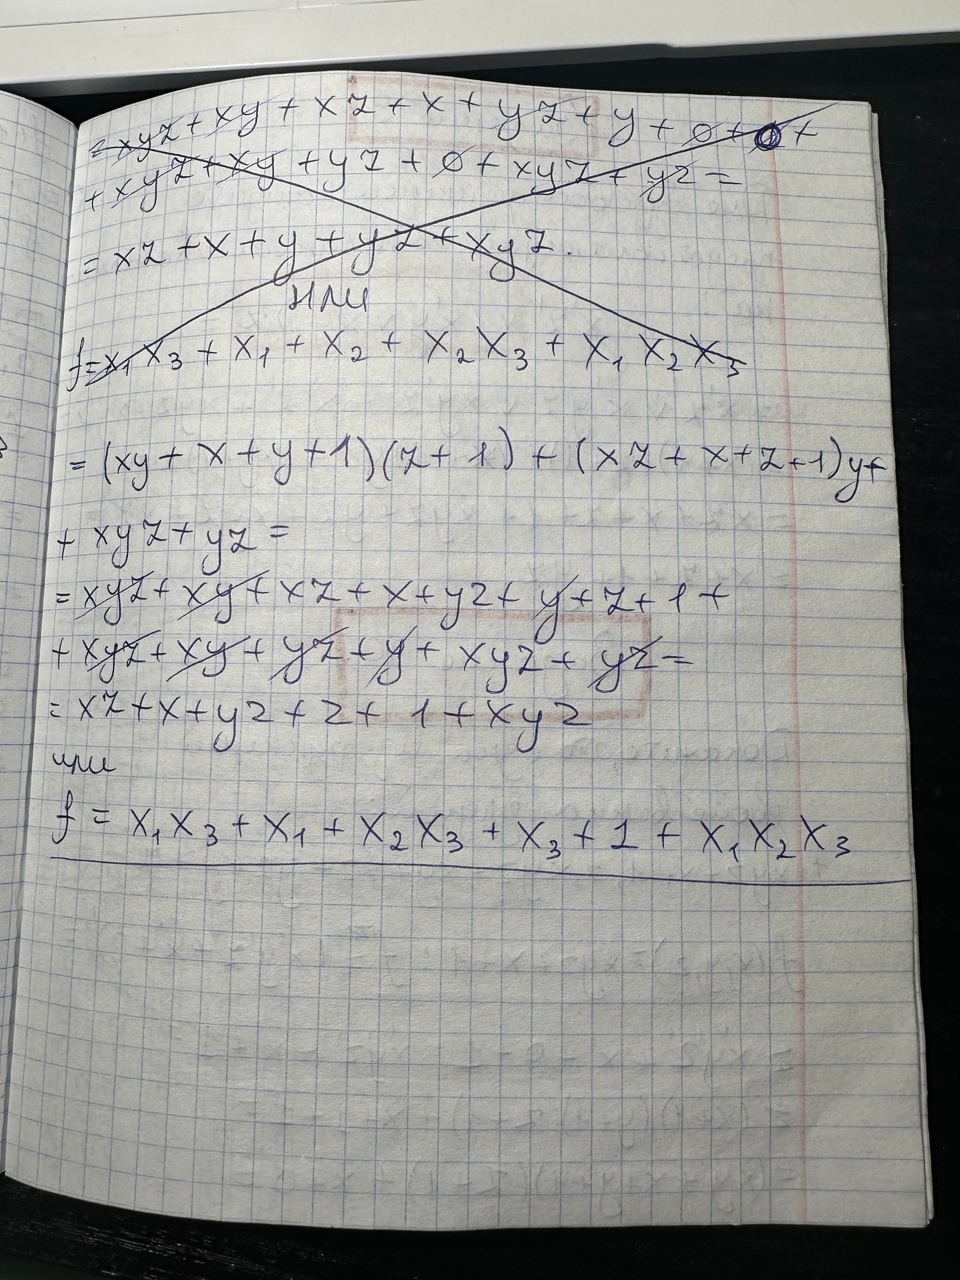 = xyz + xy + xz + x + yz + y + 0 + 0 +
+ xyz + xy + yz + 0 + xyz + yz =
= xz + x + y + yz + xyz.
или
f = x₁x₃ + x₁ + x₂ + x₂x₃ + x₁x₂x₃
= (xy + x + y + 1)(z + 1) + (xz + x + z + 1)y +
+ xyz + yz =
= xyz + xy + xz + x + yz + y + z + 1 +
+ xyz + xy + yz + y + xyz + yz =
= xz + x + yz + z + 1 + xyz
или
f = x₁x₃ + x₁ + x₂x₃ + x₃ + 1 + x₁x₂x₃